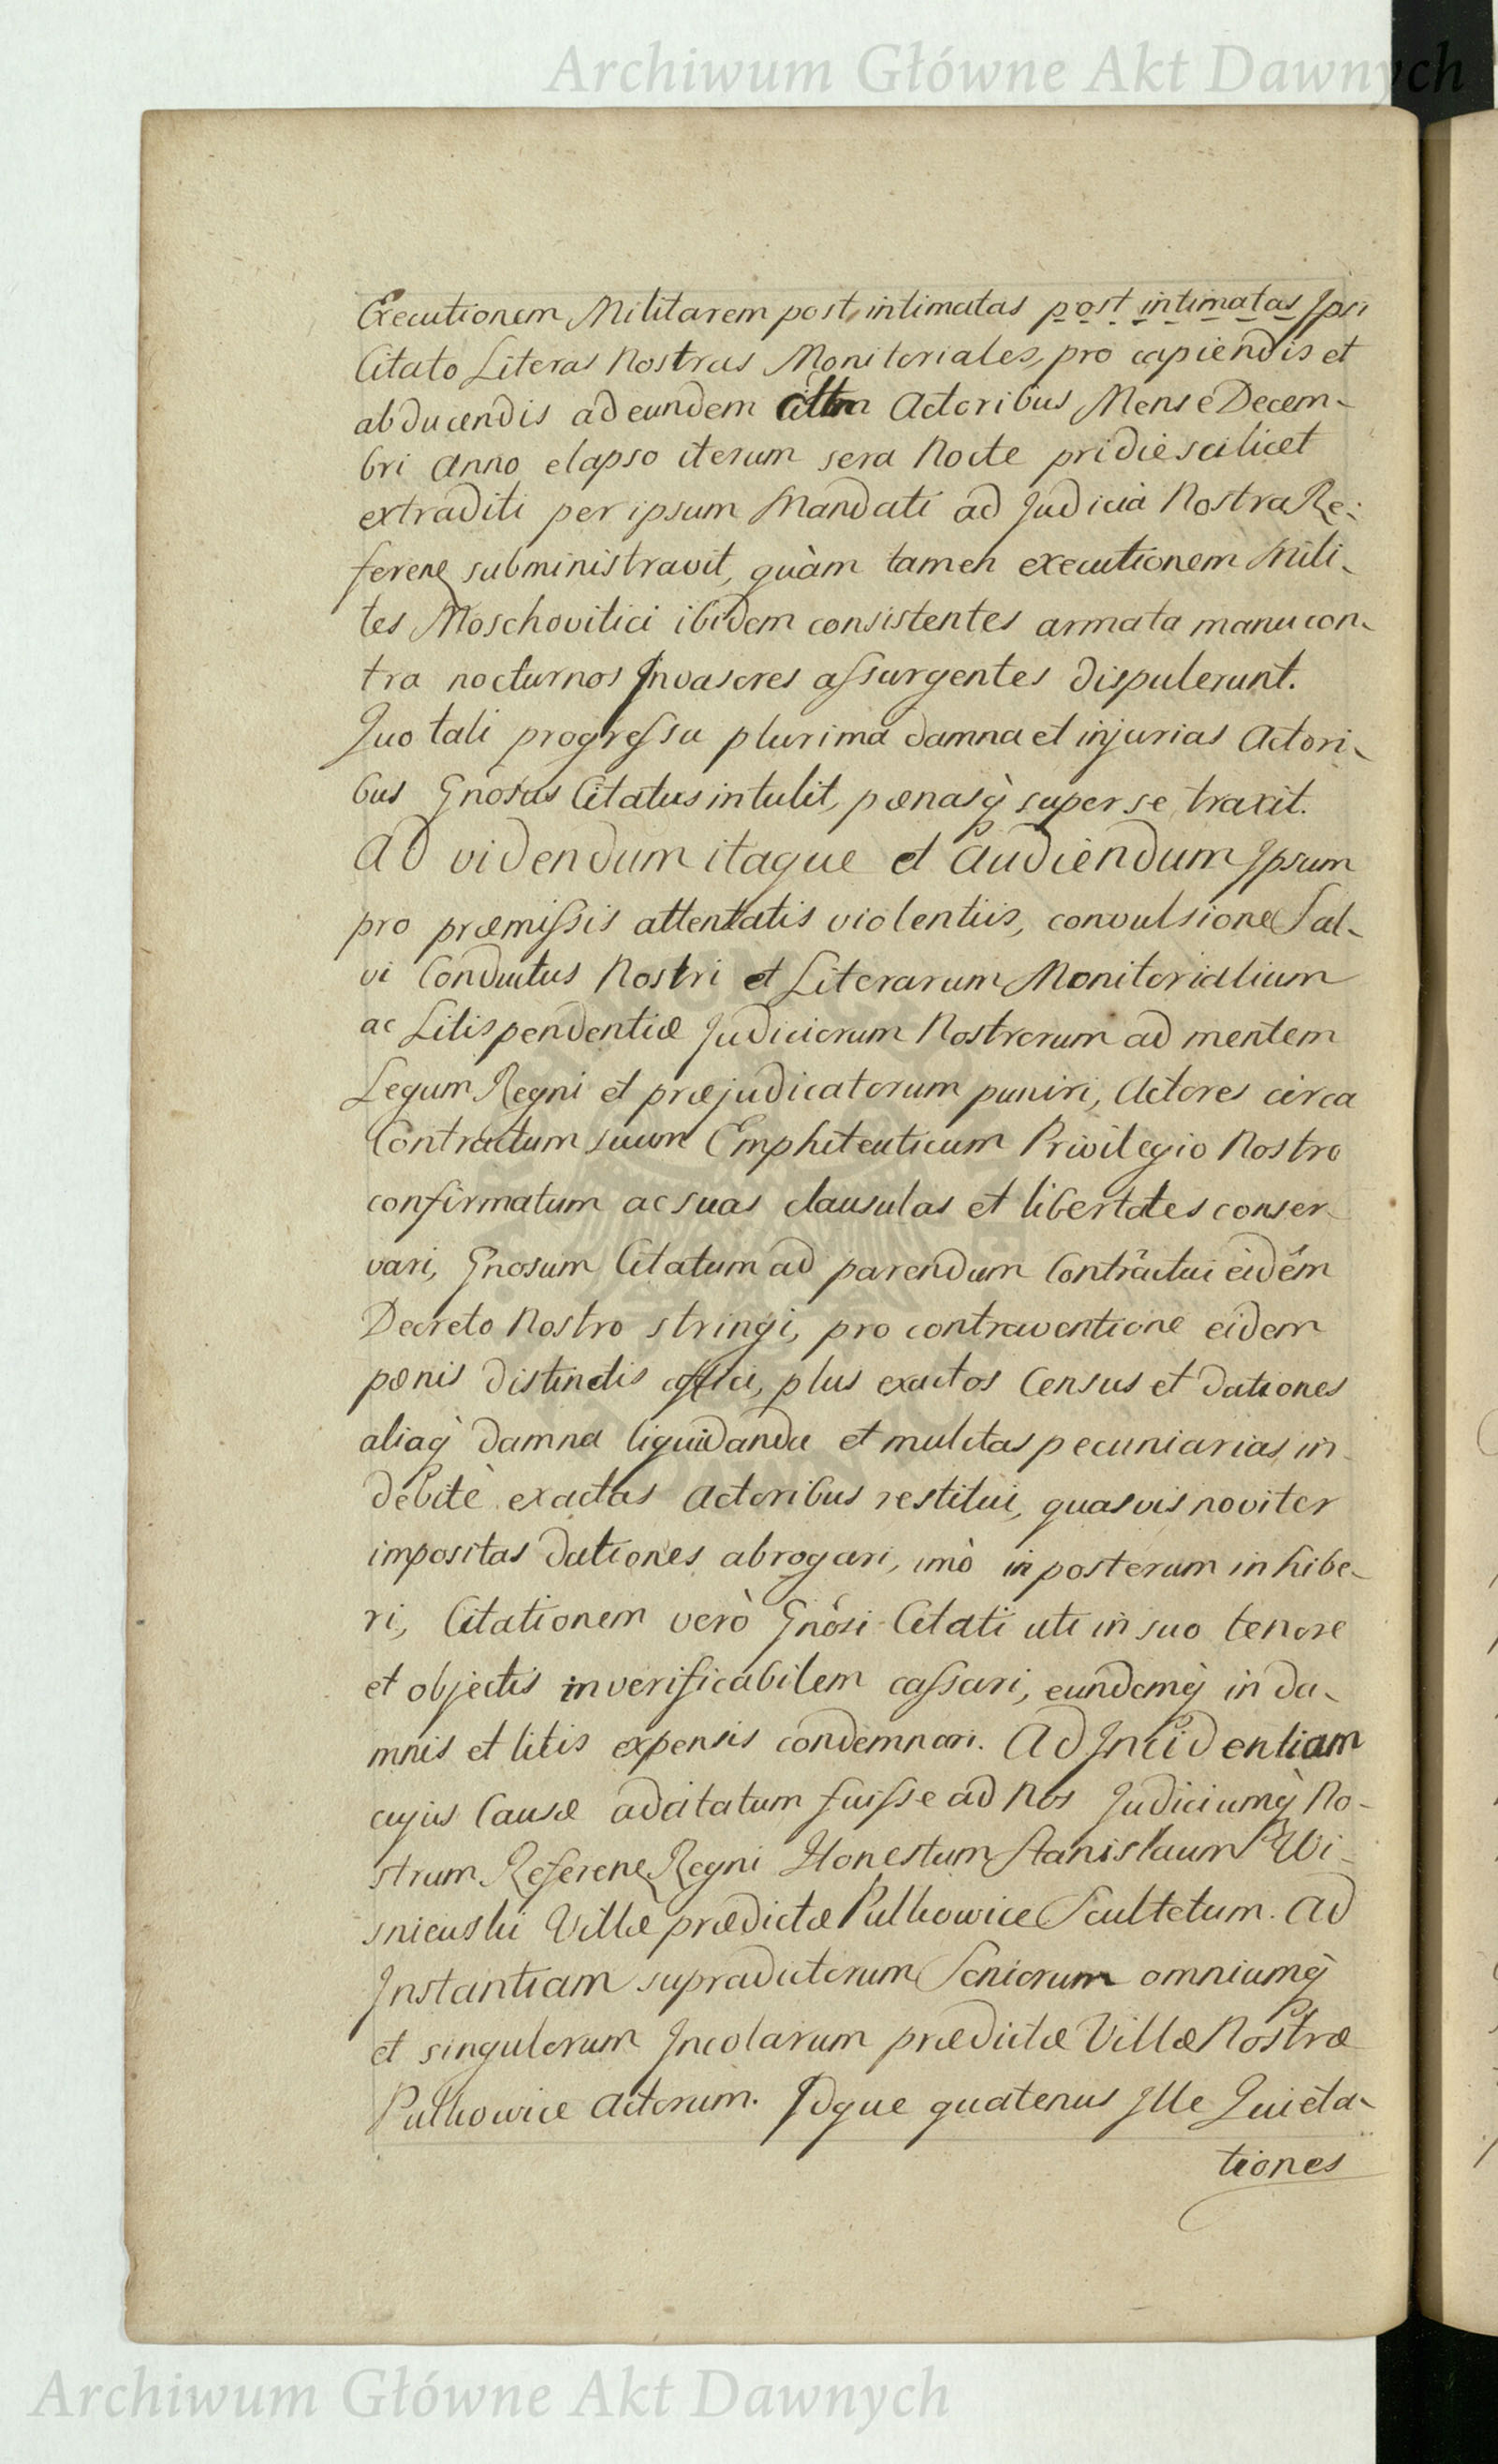 Archiwum Główne Akt Dawnych
Executionem Militarem post intimatas post intimatas Ipsi
Citato Literas Nostras Monitoriales, pro capiendis et
abducendis ad eundem Actoribus Mense Decem-
bri Anno elapso iterum sera Nocte pridie scilicet
extraditi per ipsum Mandati ad Judicia Nostra Re-
feren subministravit, quàm tamen executionem Mili-
tes Moschovitici ibidem consistentes armata manu con-
tra nocturnos Invasores assurgentes dispulerunt.
Quo tali progressu plurima damna et injurias Actori-
bus Gnosus Citatus intulit, pœnasq̀ super se traxit.
Ad videndum itaque et audiendum Ipsum
pro præmissis attentatis violentiis, convulsione Sal-
vi Conductus Nostri et Literarum Monitorialium
ac Litispendentiæ Judiciorum Nostrorum ad mentem
Legum Regni et præjudicatorum puniri, Actores circa
Contractum suum Emphiteuticum Privilegio Nostro
confirmatum ac suas clausulas et libertates conser-
vari, Gnosum Citatum ad parendum Contractui eidem
Decreto Nostro stringi, pro contraventione eidem
pœnis distinctis affici, plus exactos Census et dationes
aliaq̀ damna liquidanda et mulctas pecuniarias in-
debitè exactas Actoribus restitui, quasvis noviter
impositas dationes abrogari, imò in posterum inhibe-
ri, Citationem verò Gnosi Citati uti in suo tenore
et objectis inverificabilem cassari, eundemq̀ in da-
mnis et litis expensis condemnari. Ad Incidentiam
cujus Causæ adcitatum fuisse ad Nos Judiciumq̀ No-
strum Referen Regni Honestum Stanislaum Wi-
snieuski Villæ prædictæ Pulkowice Scultetum. Ad
Instantiam supradictorum Seniorum omniumq̀
et singulorum Incolarum prædictæ Villæ Nostræ
Pulkowice Actorum. Idque quatenus Ille Quieta-
tiones
Archiwum Główne Akt Dawnych